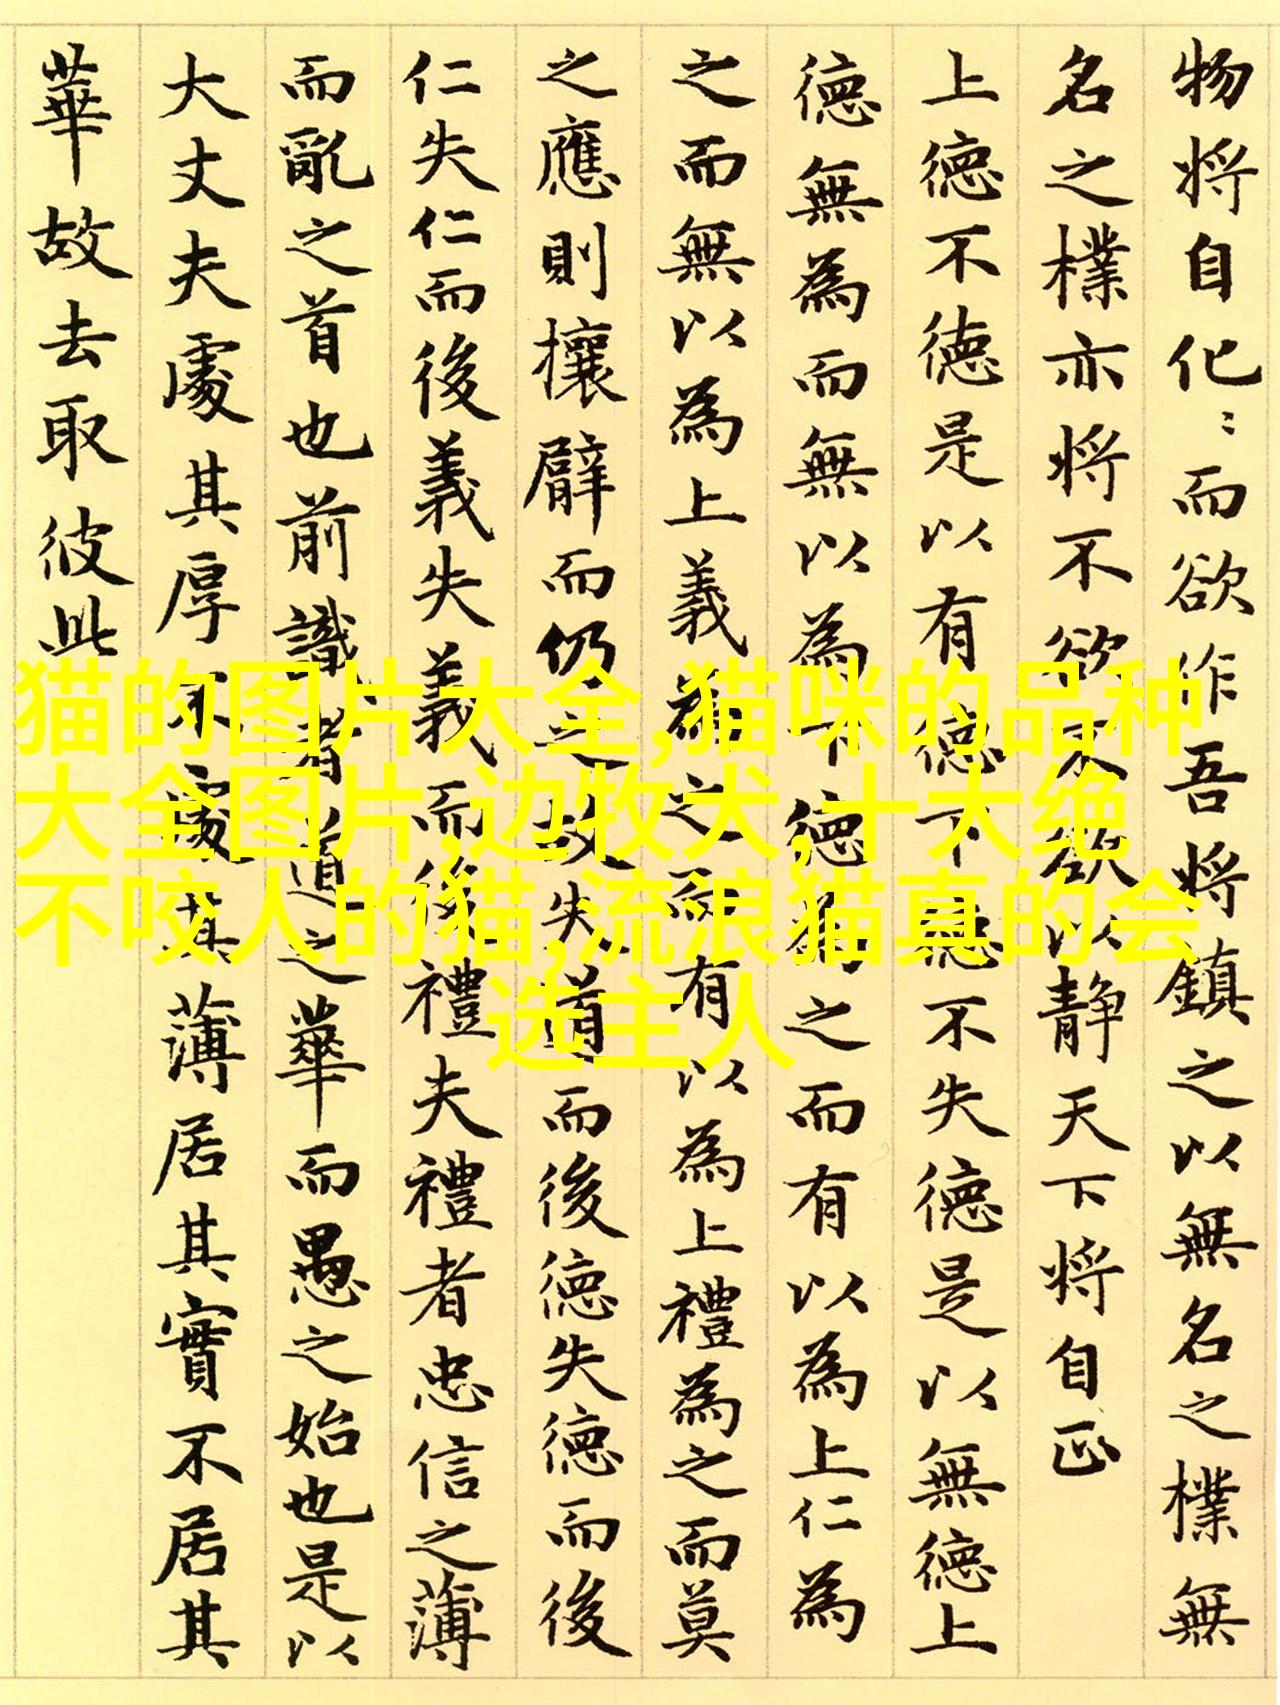 物将自化〻而欲作吾将鎮之以無名之樸無
名之樸亦将不欲不欲以静天下将自正
上徳不徳是以有徳下徳不失徳是以無徳上
徳無為而無以為下徳為之而有以為上仁為
之而無以為上義為之而有以為上禮為之而莫
之應則攘臂而仍之故失道而後徳失徳而後
仁失仁而後義失義而後禮夫禮者忠信之薄
而亂之首也前識者道之華而愚之始也是以
大丈夫處其厚不處其薄居其實不居其
華故去取彼此
猫的图片大全,猫咪的品种
大全图片,边牧犬,十大绝
不咬人的猫,流浪猫真的会
选主人